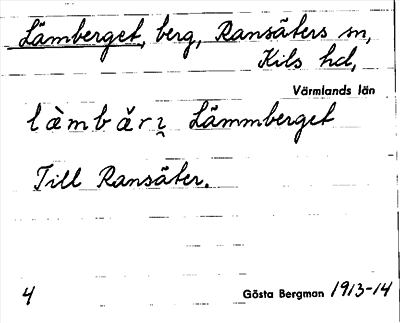 Lämberget, berg, Ransäters sn,
Kils hd,
Värmlands län
lä̀mbǎrı̭ Lämmberget
Till Ransäter.
4
Gösta Bergman 1913-14